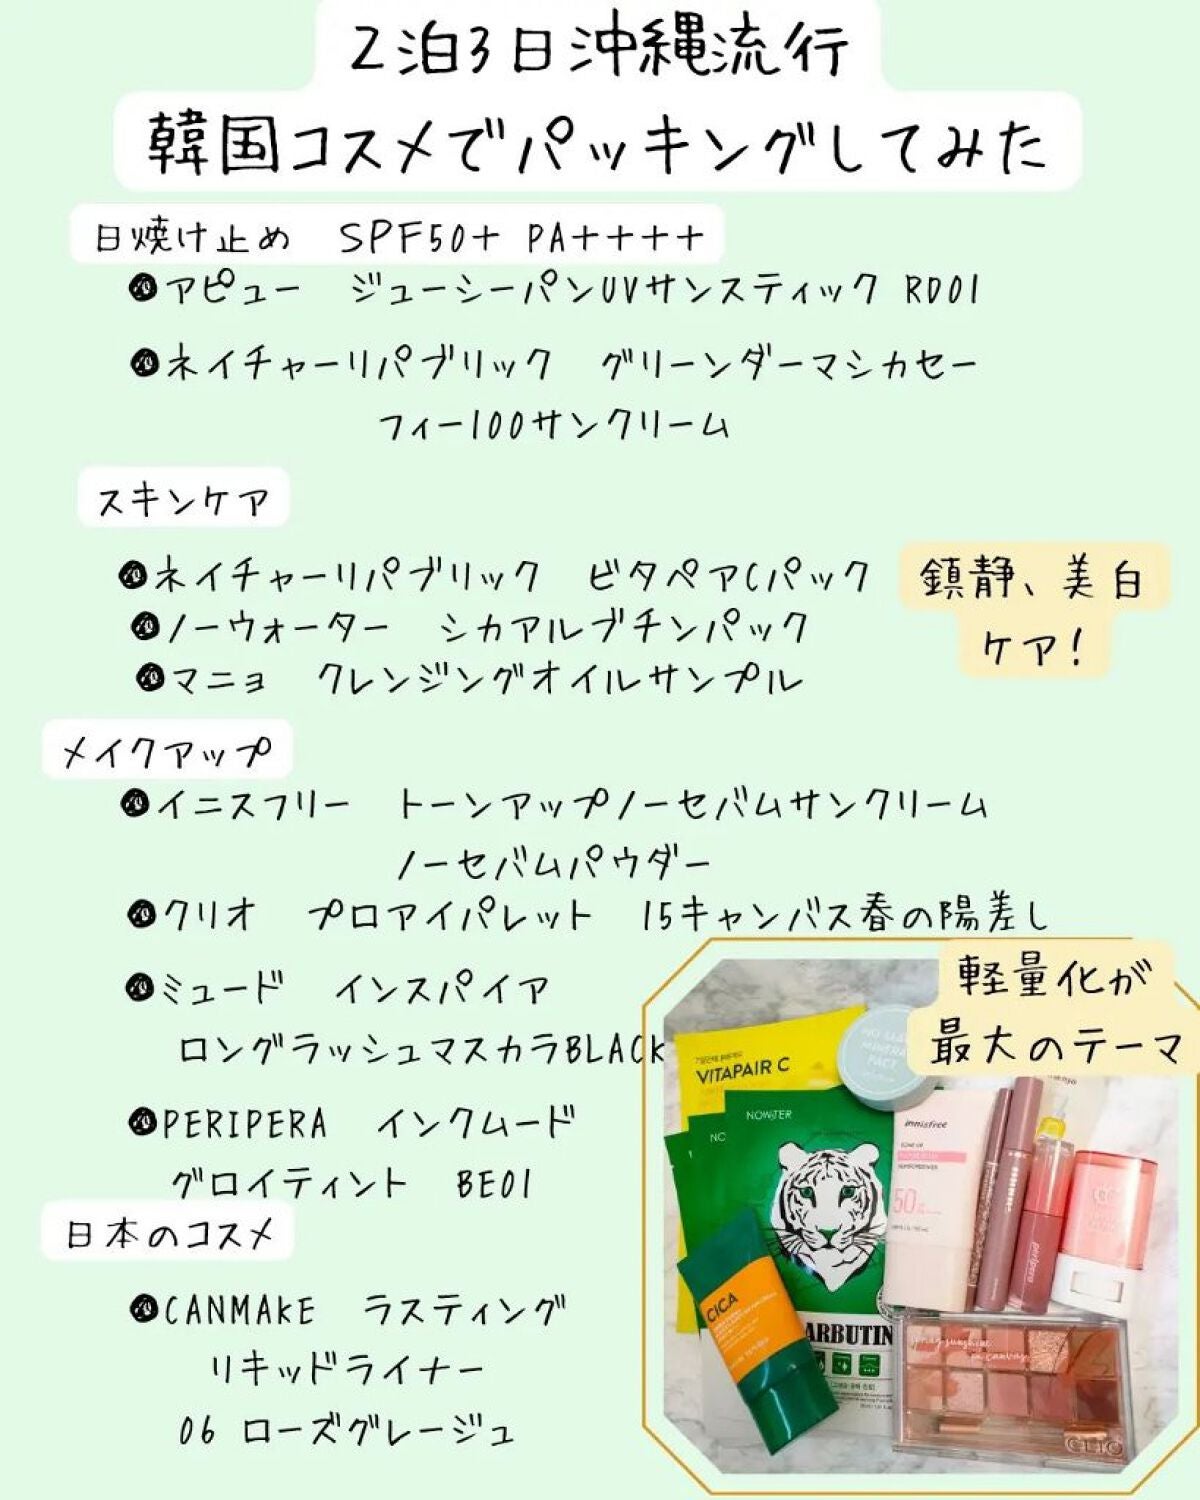 2泊3日沖縄流行
韓国コスメでパッキングしてみた
日焼け止め　SPF50+ PA++++
アピュー　ジューシーパンUVサンスティック RD01
ネイチャーリパブリック　グリーンダーマシカセー
フィー100サンクリーム
スキンケア
ネイチャーリパブリック　ビタペアCパック
ノーウォーター　シカアルブチンパック
マニョ　クレンジングオイルサンプル
鎮静、美白
ケア!
メイクアップ
イニスフリー　トーンアップノーセバムサンクリーム
ノーセバムパウダー
クリオ　プロアイパレット　15キャンバス春の陽差し
ミュード　インスパイア
ロングラッシュマスカラBLACK
PERIPERA　インクムード
グロイティント　BE01
日本のコスメ
CANMAKE　ラスティング
リキッドライナー
06 ローズグレージュ
軽量化が
最大のテーマ
VITAPAIR C
NOWATER
NO
innisfree
50
peripera
CICA
ARBUTIN
CLIO